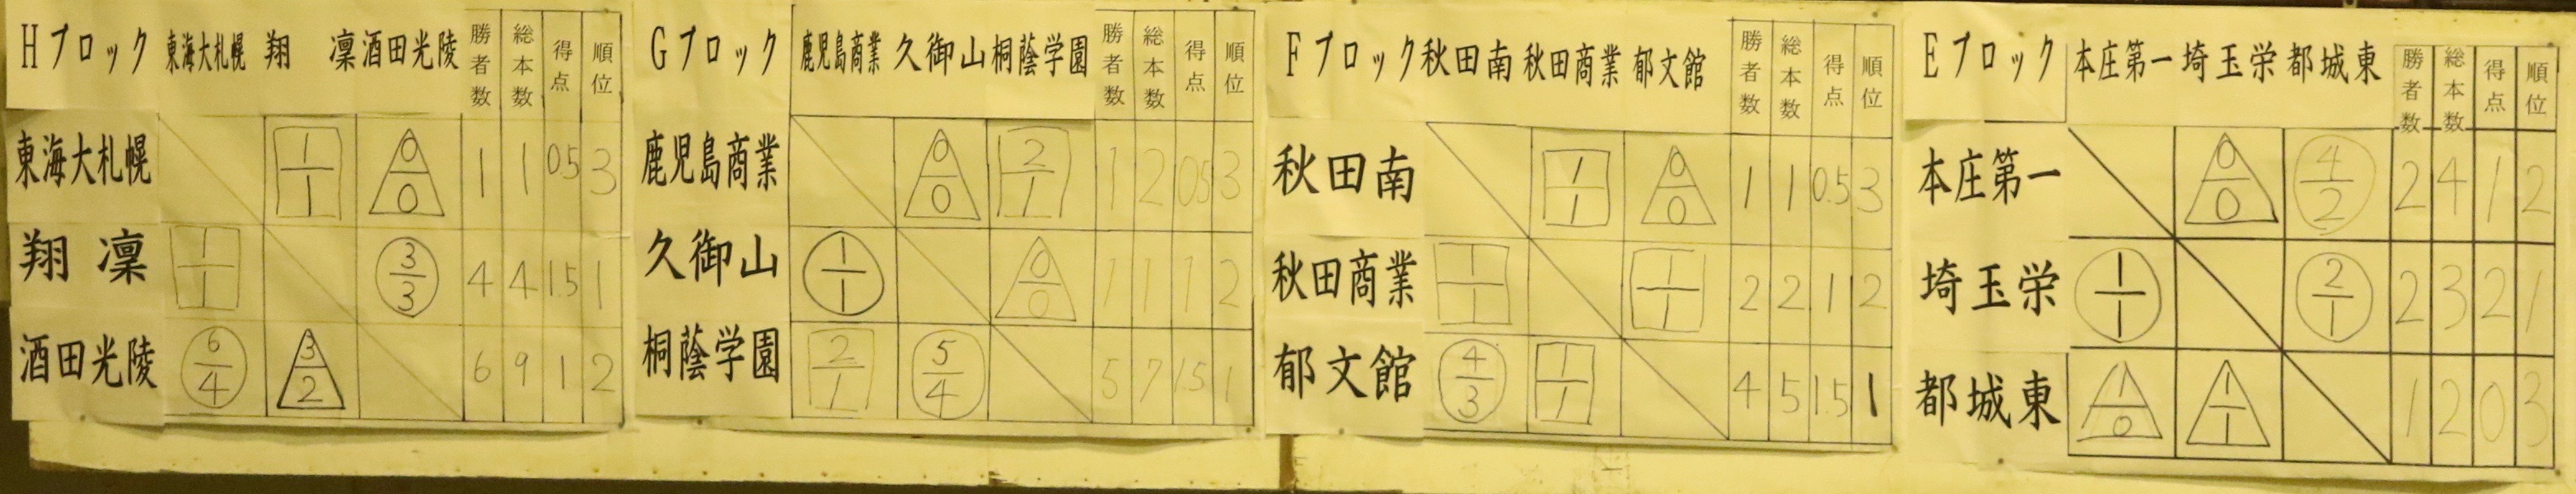 Hブロック 東海大札幌 翔凜 酒田光陵 勝者数 総本数 得点 順位
東海大札幌 1/1 0/0 1 1 0.5 3
翔凜 1/1 3/3 4 4 1.5 1
酒田光陵 6/4 3/2 6 9 1 2
Gブロック 鹿児島商業 久御山 桐蔭学園 勝者数 総本数 得点 順位
鹿児島商業 0/0 2/1 1 2 0.5 3
久御山 1/1 0/0 1 1 1 2
桐蔭学園 2/1 5/4 5 7 1.5 1
Fブロック 秋田南 秋田商業 郁文館 勝者数 総本数 得点 順位
秋田南 1/1 0/0 1 1 0.5 3
秋田商業 1/1 1/1 2 2 1 2
郁文館 4/3 1/1 4 5 1.5 1
Eブロック 本庄第一 埼玉栄 都城東 勝者数 総本数 得点 順位
本庄第一 0/0 4/2 2 4 1 2
埼玉栄 1/1 2/1 2 3 2 1
都城東 1/0 1/1 1 2 0 3